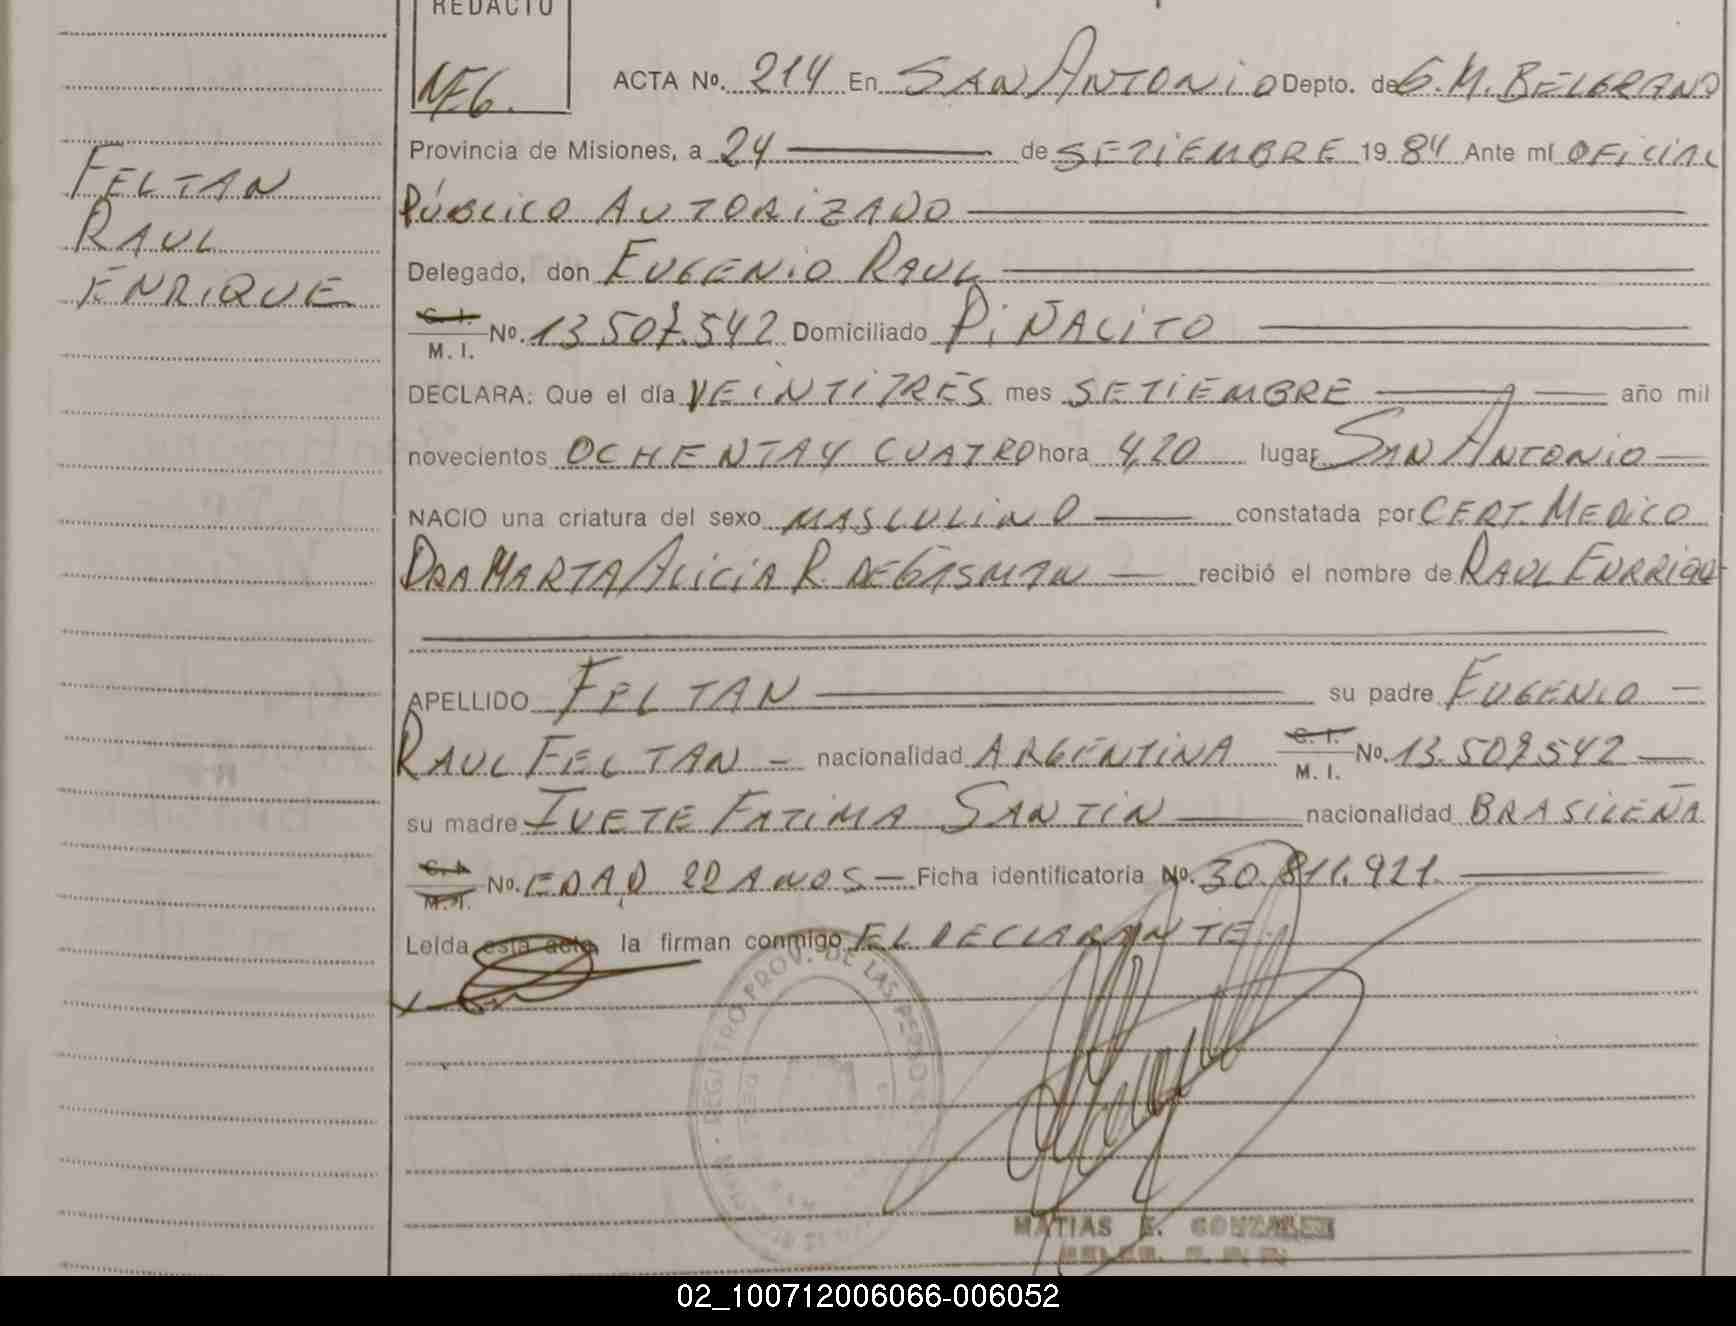 REDACTO
ACTA Nº. 214 En SAN ANTONIO Depto. de G. M. BELGRANO
Provincia de Misiones, a 24 de SETIEMBRE 1984 Ante mí OFICIAL
PÚBLICO AUTORIZADO
Delegado, don EUGENIO RAUL
C. I.
M. I. Nº. 13.507.542 Domiciliado PIÑALITO
DECLARA: Que el día VEINTITRES mes SETIEMBRE año mil
novecientos OCHENTA Y CUATRO hora 4,20 lugar SAN ANTONIO
NACIO una criatura del sexo MASCULINO constatada por CERT. MEDICO
DRA MARTA ALICIA R. DE recibió el nombre de RAUL ENRRIQUE
APELLIDO FELTAN su padre EUGENIO
RAUL FELTAN nacionalidad ARGENTINA C. I.
M. I. Nº. 13.507.542
su madre IVETE FATIMA SANTIN nacionalidad BRASILEÑA
C. I.
M. I. Nº. EDAD 22 AÑOS Ficha identificatoria Nº. 30.811.921
Leída esta acta, la firman conmigo EL DECLARANTE
REGISTRO PROV. DE LAS PERSONAS
MATIAS E. GONZALEZ
FELTAN
RAUL
ENRIQUE
02_100712006066-006052